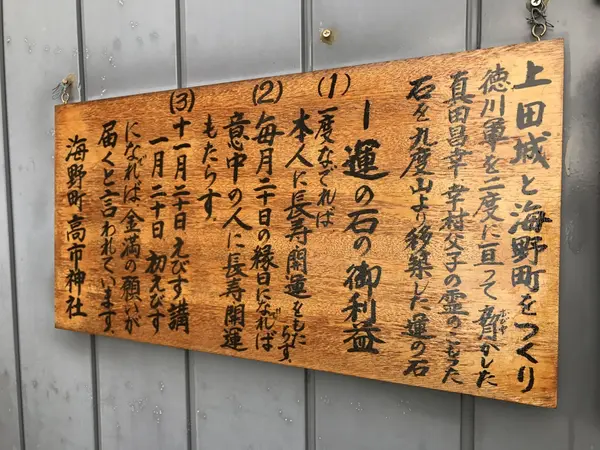 上田城と海野町をつくり
徳川軍を二度に亘って脅かした
真田昌幸 幸村父子の霊のこもった
石を九度山より移築した運の石
ー運の石の御利益
(1)
一度なでれば
本人に長寿開運をもたらす。
(2)
毎月二十日の縁日になでれば
意中の人に長寿開運
もたらす。
(3)
十一月二十日えびす講
一月二十日 初えびす
になでれば金満の願いが
届くと言われています。
海野町高市神社